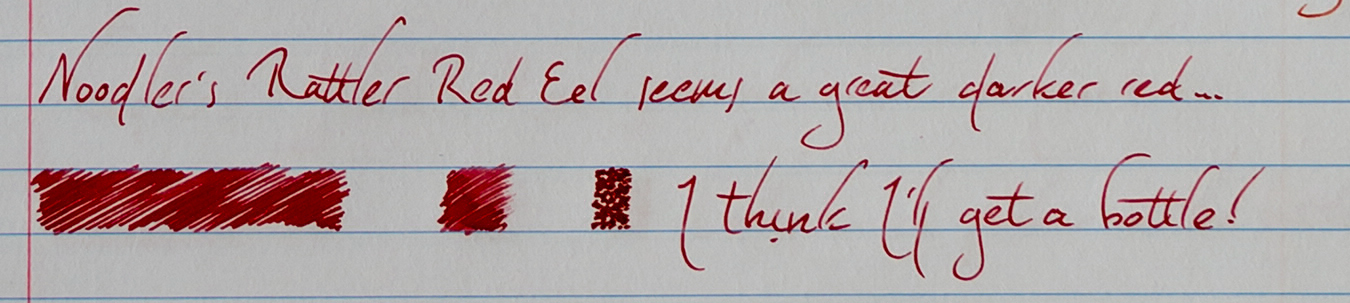 Noodler's Rattler Red Eel seems a great darker red...
I think I'll get a bottle!